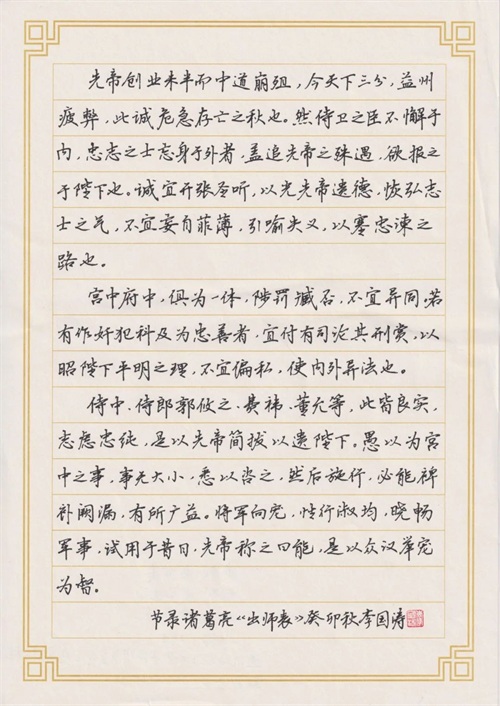 先帝创业未半而中道崩殂，今天下三分，益州
疲弊，此诚危急存亡之秋也。然侍卫之臣不懈于
内，忠志之士忘身于外者，盖追先帝之殊遇，欲报之
于陛下也。诚宜开张圣听，以光先帝遗德，恢弘志
士之气，不宜妄自菲薄，引喻失义，以塞忠谏之
路也。
宫中府中，俱为一体，陟罚臧否，不宜异同，若
有作奸犯科及为忠善者，宜付有司论其刑赏，以
昭陛下平明之理，不宜偏私，使内外异法也。
侍中、侍郎郭攸之、费祎、董允等，此皆良实，
志虑忠纯，是以先帝简拔以遗陛下。愚以为宫
中之事，事无大小，悉以咨之，然后施行，必能裨
补阙漏，有所广益。将军向宠，性行淑均，晓畅
军事，试用于昔日，先帝称之曰能，是以众议举宠
为督。
节录诸葛亮《出师表》癸卯秋李国涛